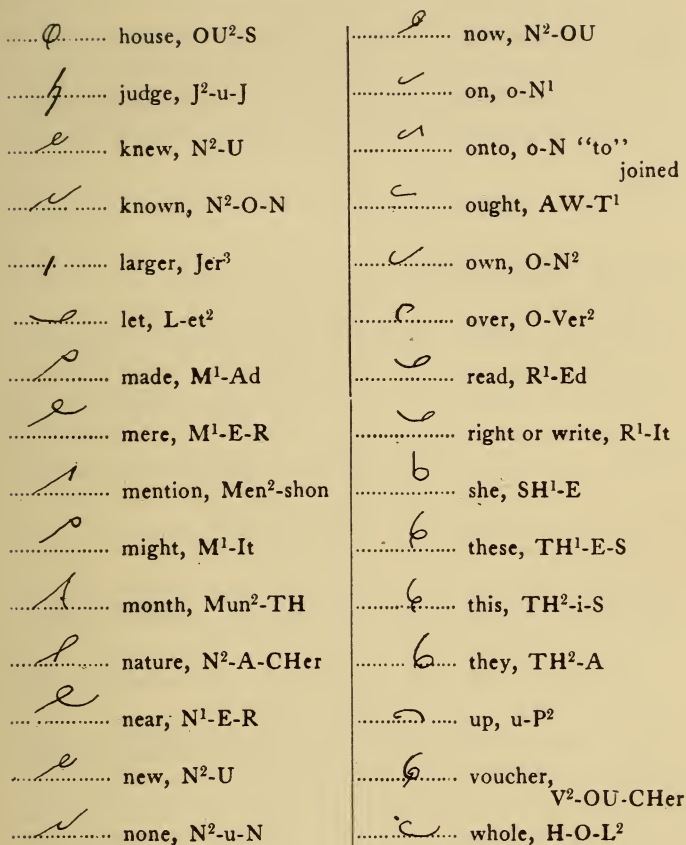 house, OU²-S
judge, J²-u-J
knew, N²-U
known, N²-O-N
larger, Jer³
let, L-et²
made, M¹-Ad
mere, M¹-E-R
mention, Men²-shon
might, M¹-It
month, Mun²-TH
nature, N²-A-CHer
near, N¹-E-R
new, N²-U
none, N²-u-N
now, N²-OU
on, o-N¹
onto, o-N “to”
joined
ought, AW-T¹
own, O-N²
over, O-Ver²
read, R¹-Ed
right or write, R¹-It
she, SH¹-E
these, TH¹-E-S
this, TH²-i-S
they, TH²-A
up, u-P²
voucher,
V²-OU-CHer
whole, H-O-L²